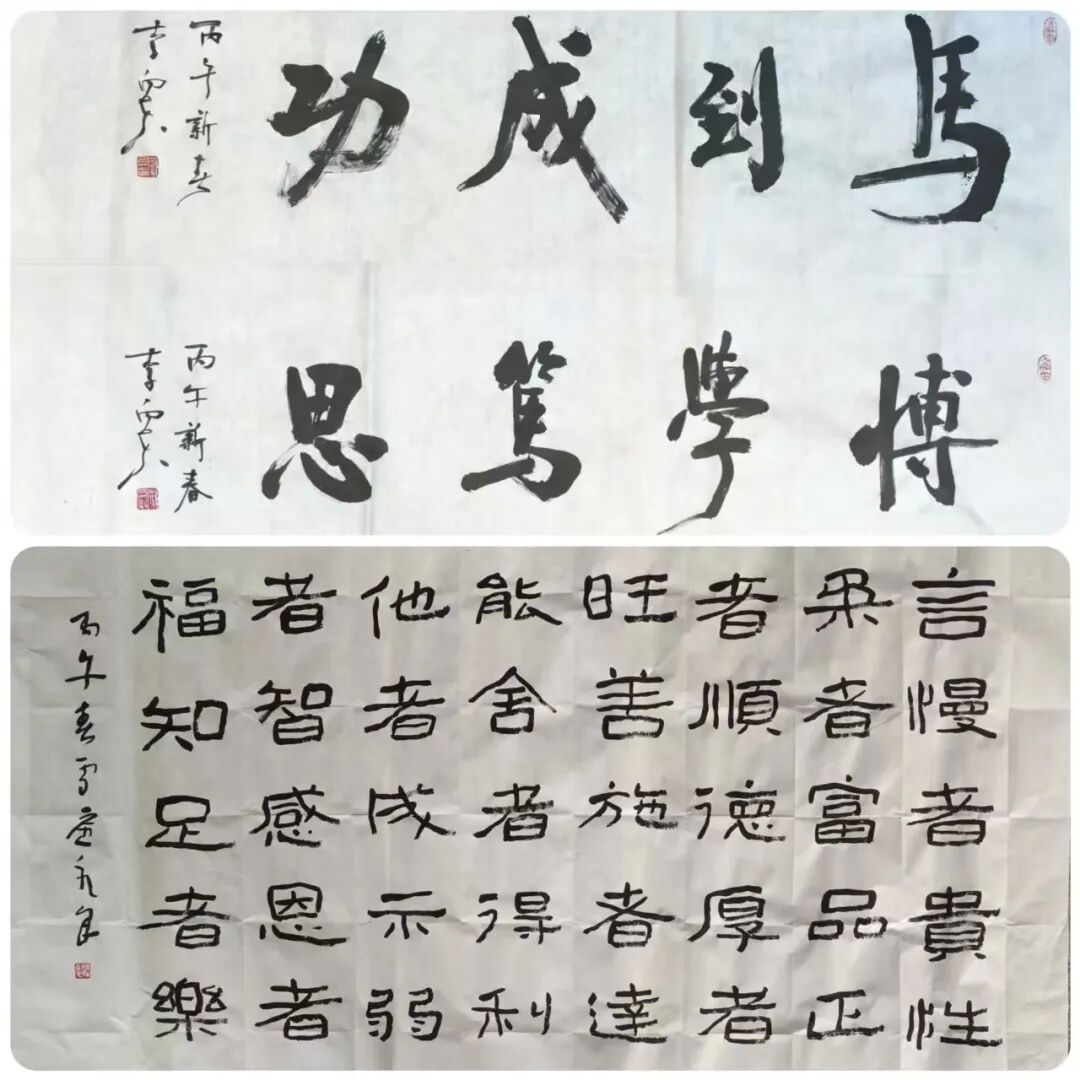 馬到成功
丙午新春
李
博學篤思
丙午新春
李
言慢者貴性
柔者富品正
者順德厚者
旺善施者達
能舍者得利
他者成示弱
者智感恩者
福知足者樂
丙午春雪